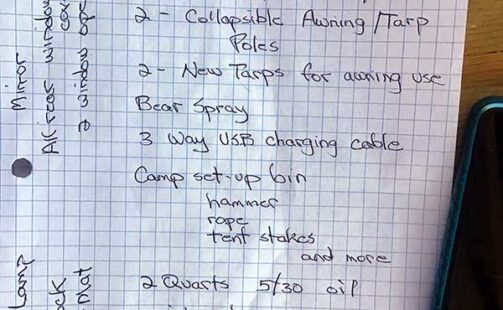 2 - Collapsible Awning/Tarp
Poles
2 - New Tarps for awning use
Bear Spray
3 Way USB charging cable
Camp set-up bin
hammer
rope
tent stakes
and more
2 Quarts 5/30 oil
Mirror
All rear window
2 window
Lamp